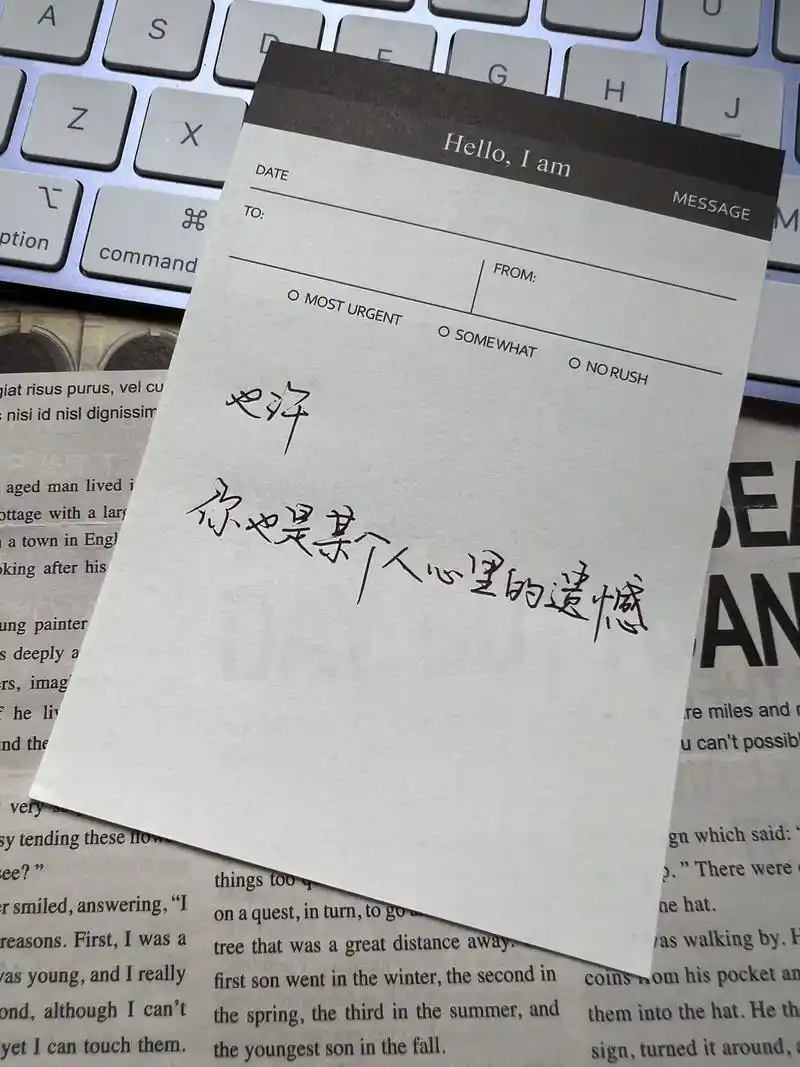 A
S
D
F
G
H
J
U
Z
X
M
option
⌘
command
Hello, I am
MESSAGE
DATE
TO:
FROM:
MOST URGENT
SOMEWHAT
NO RUSH
也许
你也是某个人心里的遗憾
giat risus purus, vel cu
nisi id nisl dignissim
aged man lived i
ottage with a larg
a town in Engl
king after his
ung painter
s deeply a
ers, imag
f he li
nd the
very
sy tending these flow
see?”
er smiled, answering, “I
reasons. First, I was a
was young, and I really
ond, although I can’t
yet I can touch them.
things too
on a quest, in turn, to go
tree that was a great distance away.
first son went in the winter, the second in
the spring, the third in the summer, and
the youngest son in the fall.
SEA
AN
re miles and
u can't possibl
gn which said: “
p.” There were
he hat.
as walking by. H
coins from his pocket an
them into the hat. He th
sign, turned it around, a